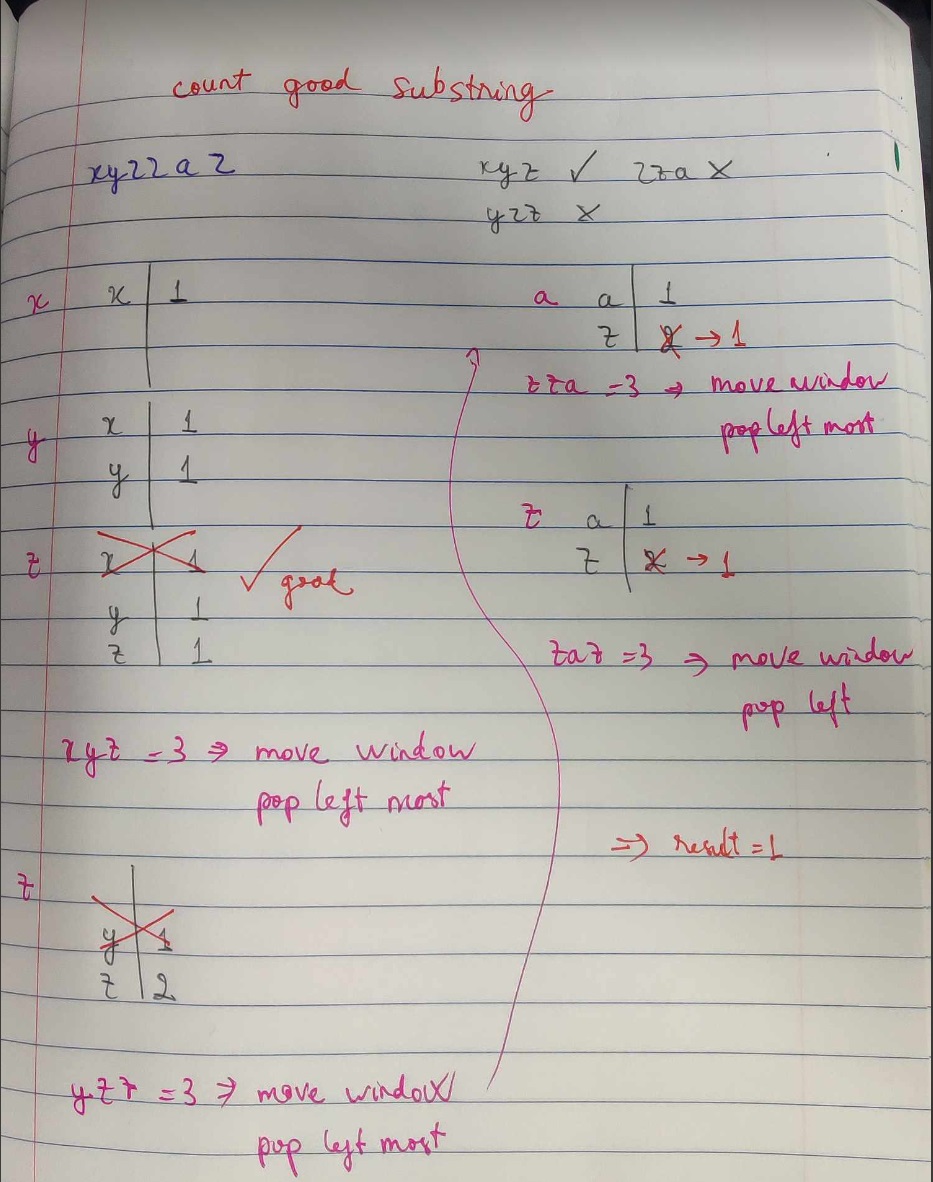 count good substring
xyzzaz
xyz ✓ zza X
yzz X
x x | 1
y x | 1
y | 1
z x | 1 ✓ good
y | 1
z | 1
xyz = 3 ⇒ move window
pop left most
z
y | 1
z | 2
yzz = 3 ⇒ move window
pop left most
a a | 1
z | 2 → 1
zza = 3 → move window
pop left most
z a | 1
z | 2 → 1
zaz = 3 ⇒ move window
pop left
⇒ result = 1